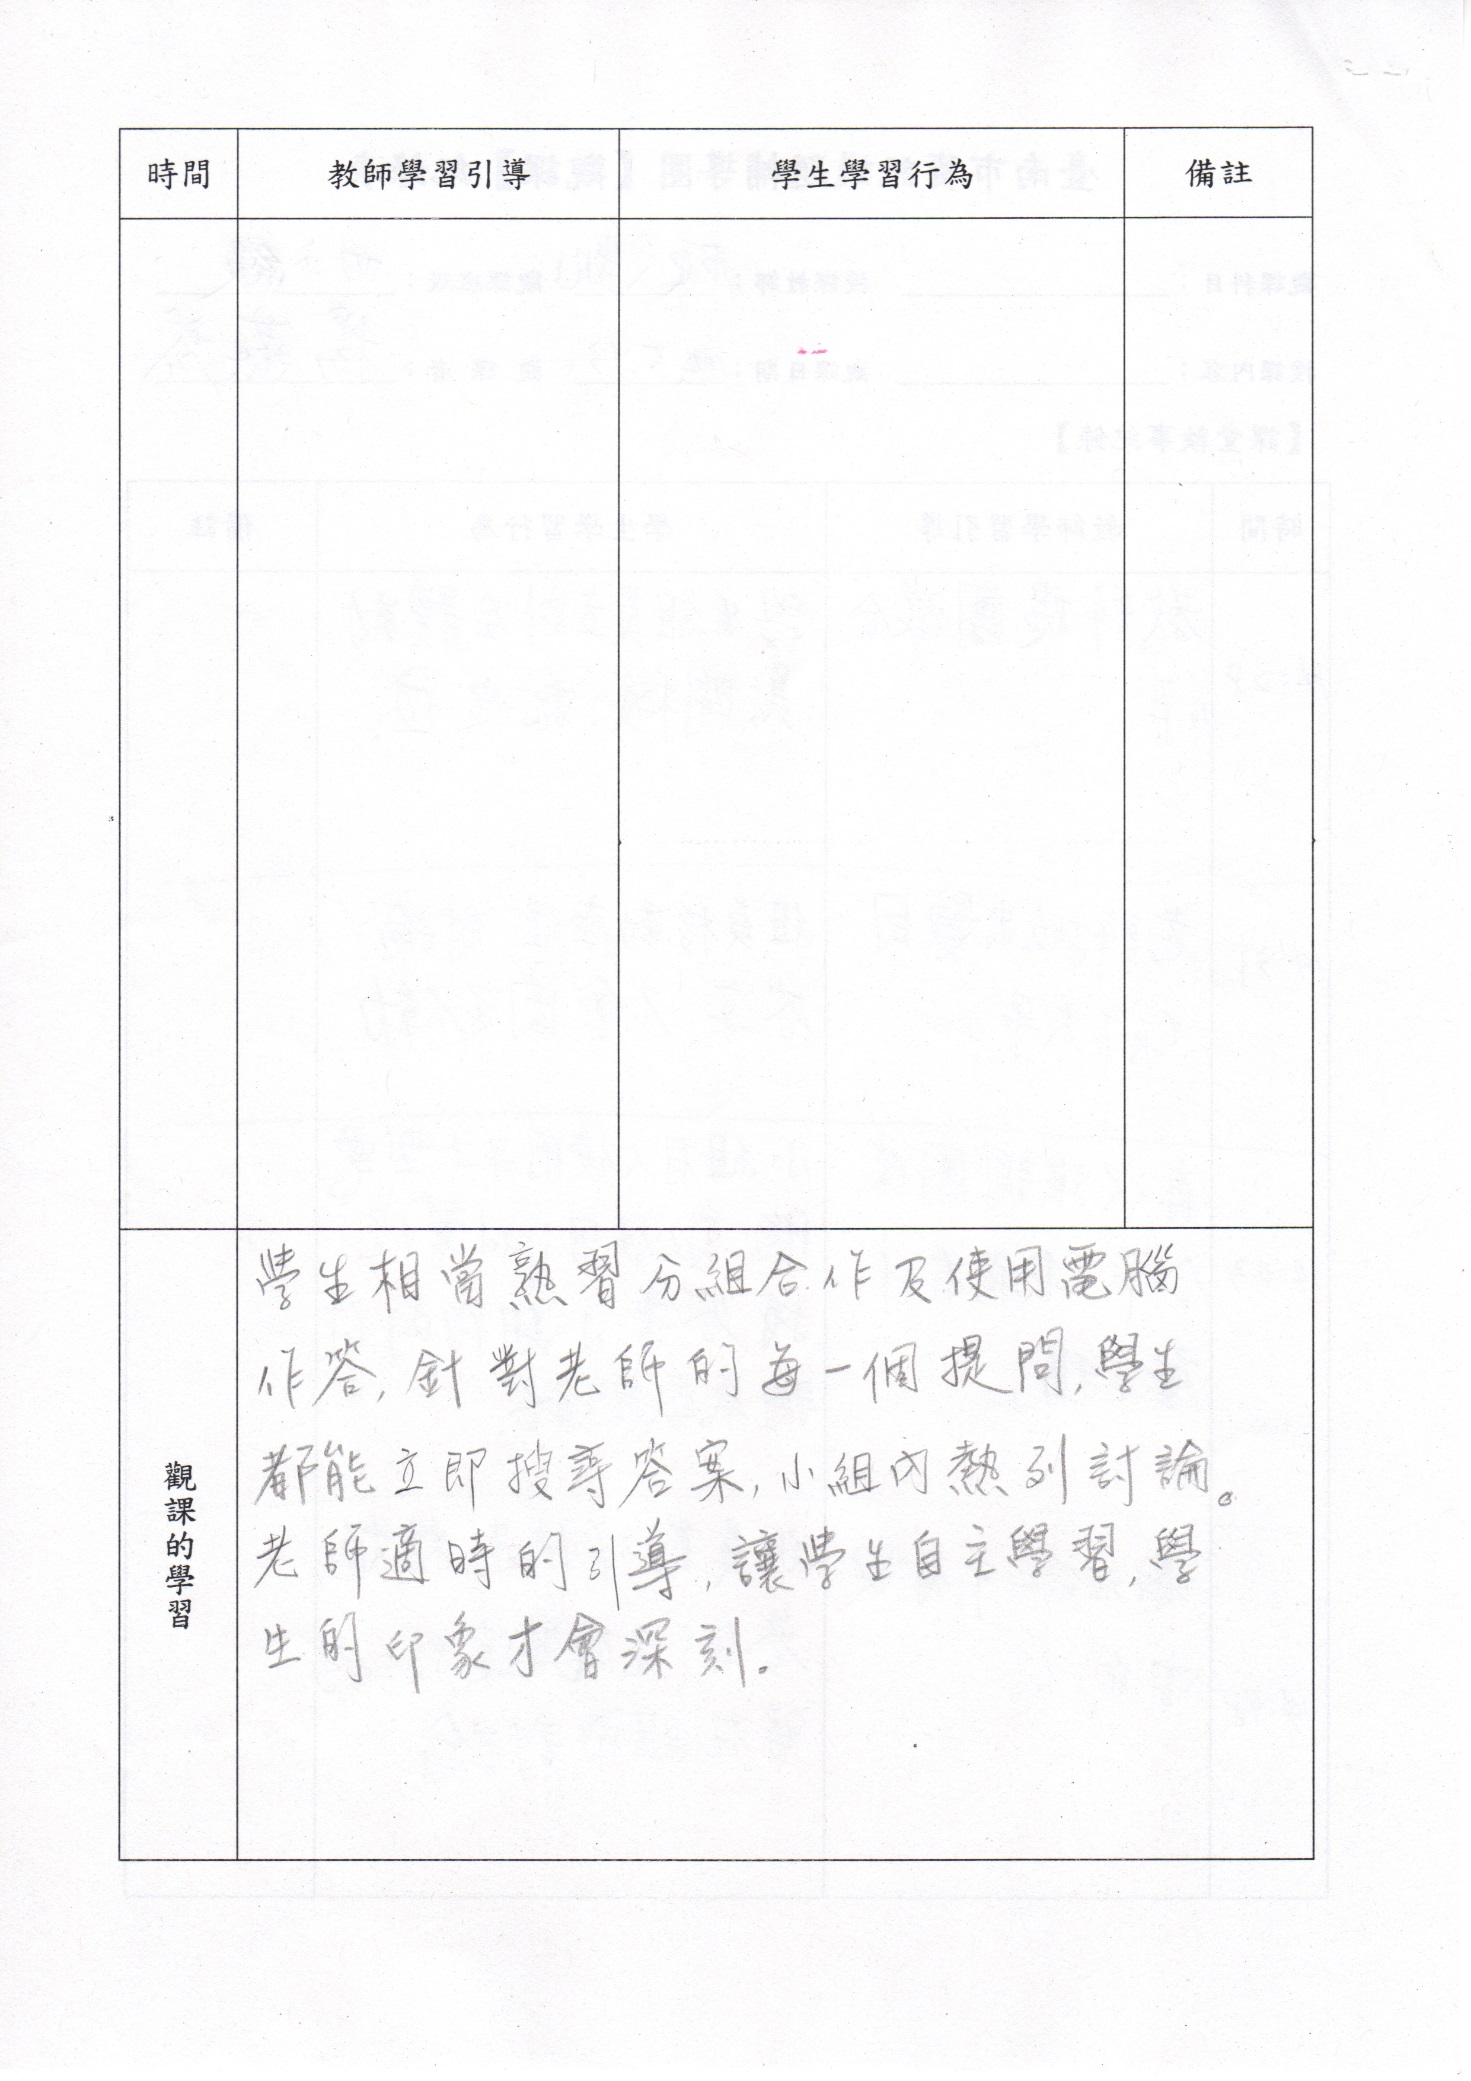 時間 教師學習引導 學生學習行為 備註
觀課的學習
學生相當熟習分組合作及使用電腦
作答,針對老師的每一個提問,學生
都能立即搜尋答案,小組內熱列討論。
老師適時的引導,讓學生自主學習,學
生的印象才會深刻。